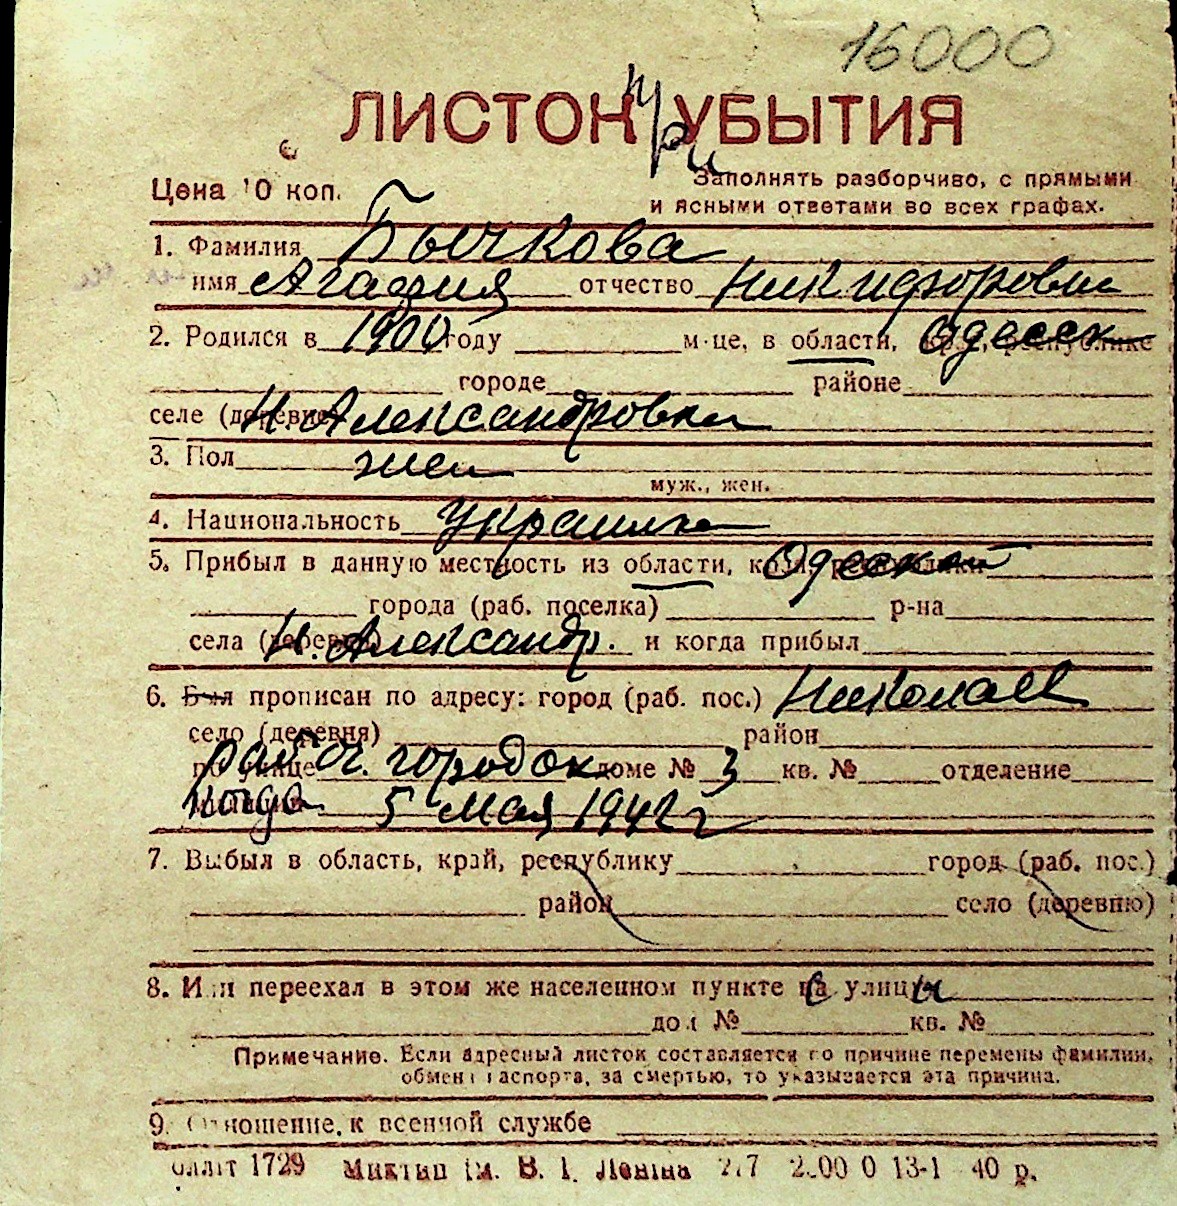 16000
ЛИСТОК при УБЫТИЯ
Цена 10 коп.
Заполнять разборчиво, с прямыми
и ясными ответами во всех графах.
1. Фамилия Бычкова
имя Агафия отчество Никифоровн
2. Родился в 1900 году м-це, в области, Одесск
городе районе
селе (деревне) Н Александровка
3. Пол жен
муж., жен.
4. Национальность украинка
5. Прибыл в данную местность из области, края, республики Одесской
города (раб. поселка) р-на
села (деревни) Н. Александр. и когда прибыл
6. Был прописан по адресу: город (раб. пос.) Николаев
село (деревня) район
по улице рабоч. городок доме № 3 кв. № отделение
когда 5 мая 1942 г
7. Выбыл в область, край, республику город (раб. пос.)
район село (деревню)
8. Или переехал в этом же населенном пункте с улицы
дом № кв. №
Примечание. Если адресный листок составляется по причине перемены фамилии,
обмена паспорта, за смертью, то указывается эта причина.
9. Отношение к военной службе
1729 им. В. І. Леніна 13-1 40 р.